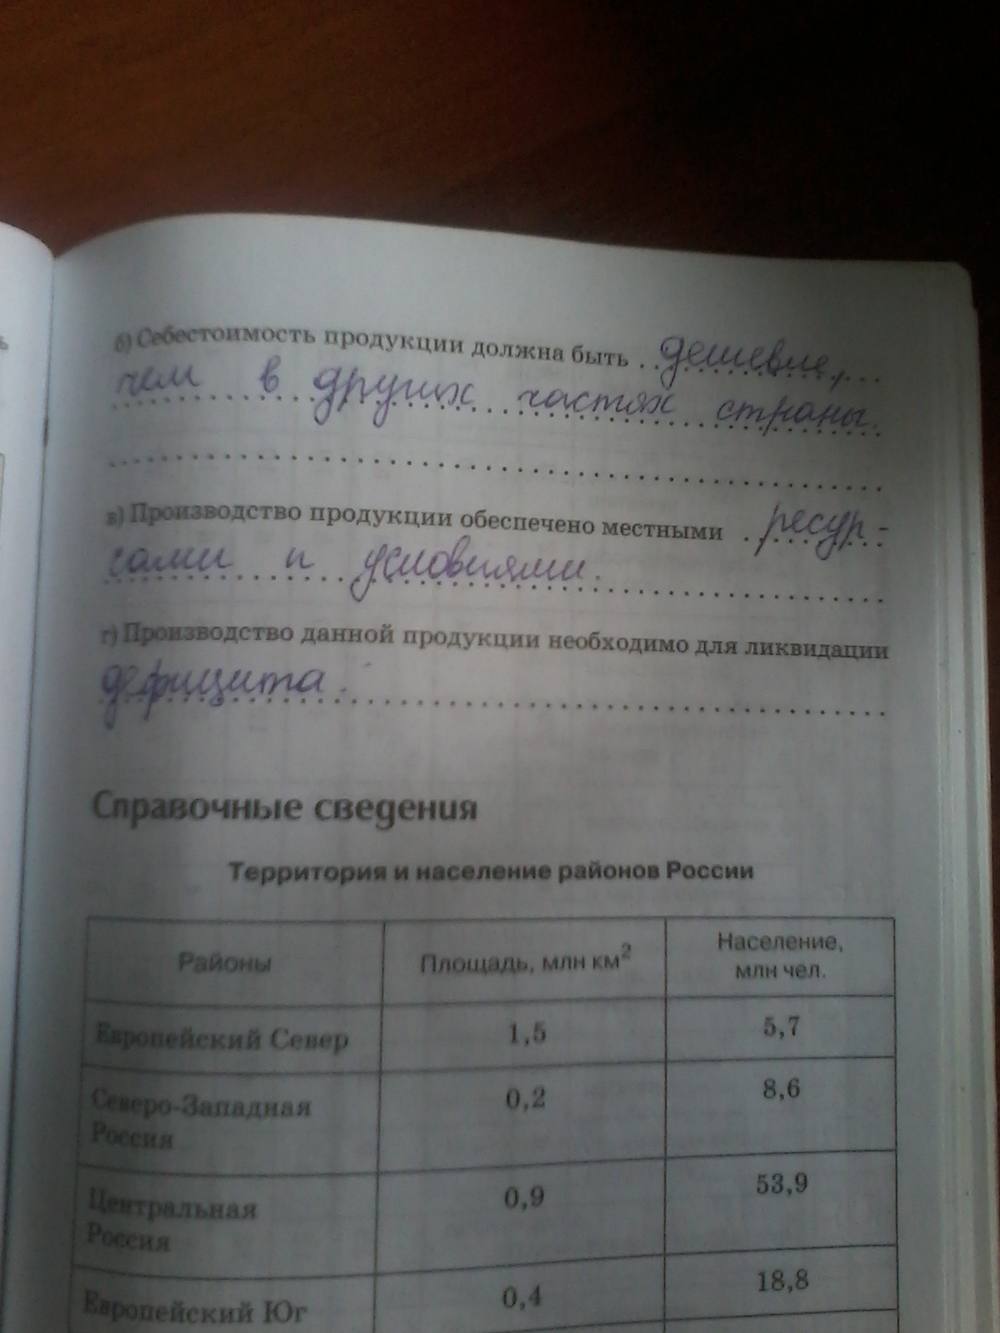 б) Себестоимость продукции должна быть дешевле,
чем в других частях страны.
в) Производство продукции обеспечено местными ресур-
сами и условиями.
г) Производство данной продукции необходимо для ликвидации
дефицита.
Справочные сведения
Территория и население районов России
Районы Площадь, млн км² Население, млн чел.
Европейский Север 1,5 5,7
Северо-Западная Россия 0,2 8,6
Центральная Россия 0,9 53,9
Европейский Юг 0,4 18,8